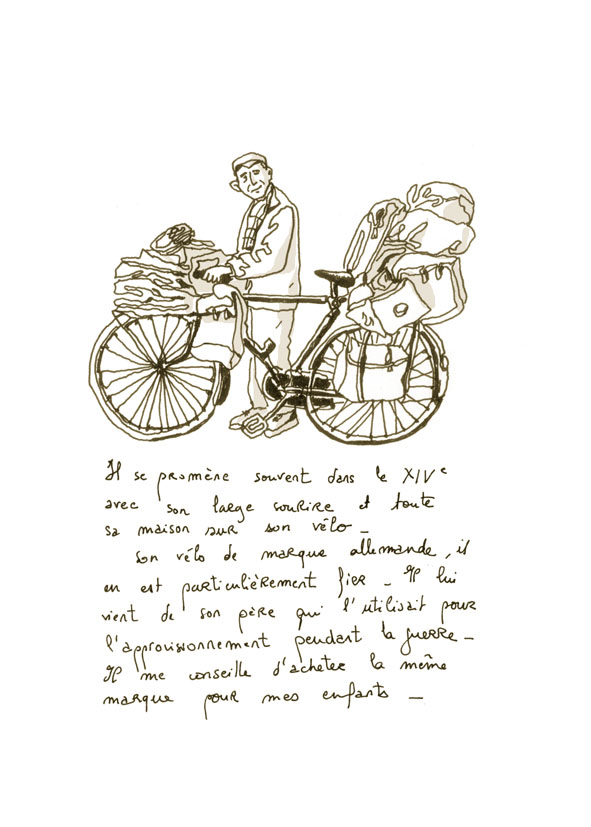 Il se promène souvent dans le XIVe
avec son large sourire et toute
sa maison sur son vélo _
Son vélo de marque allemande, il
en est particulièrement fier _ Il lui
vient de son père qui l'utilisait pour
l'approvisionnement pendant la guerre _
Il me conseille d'acheter la même
marque pour mes enfants _